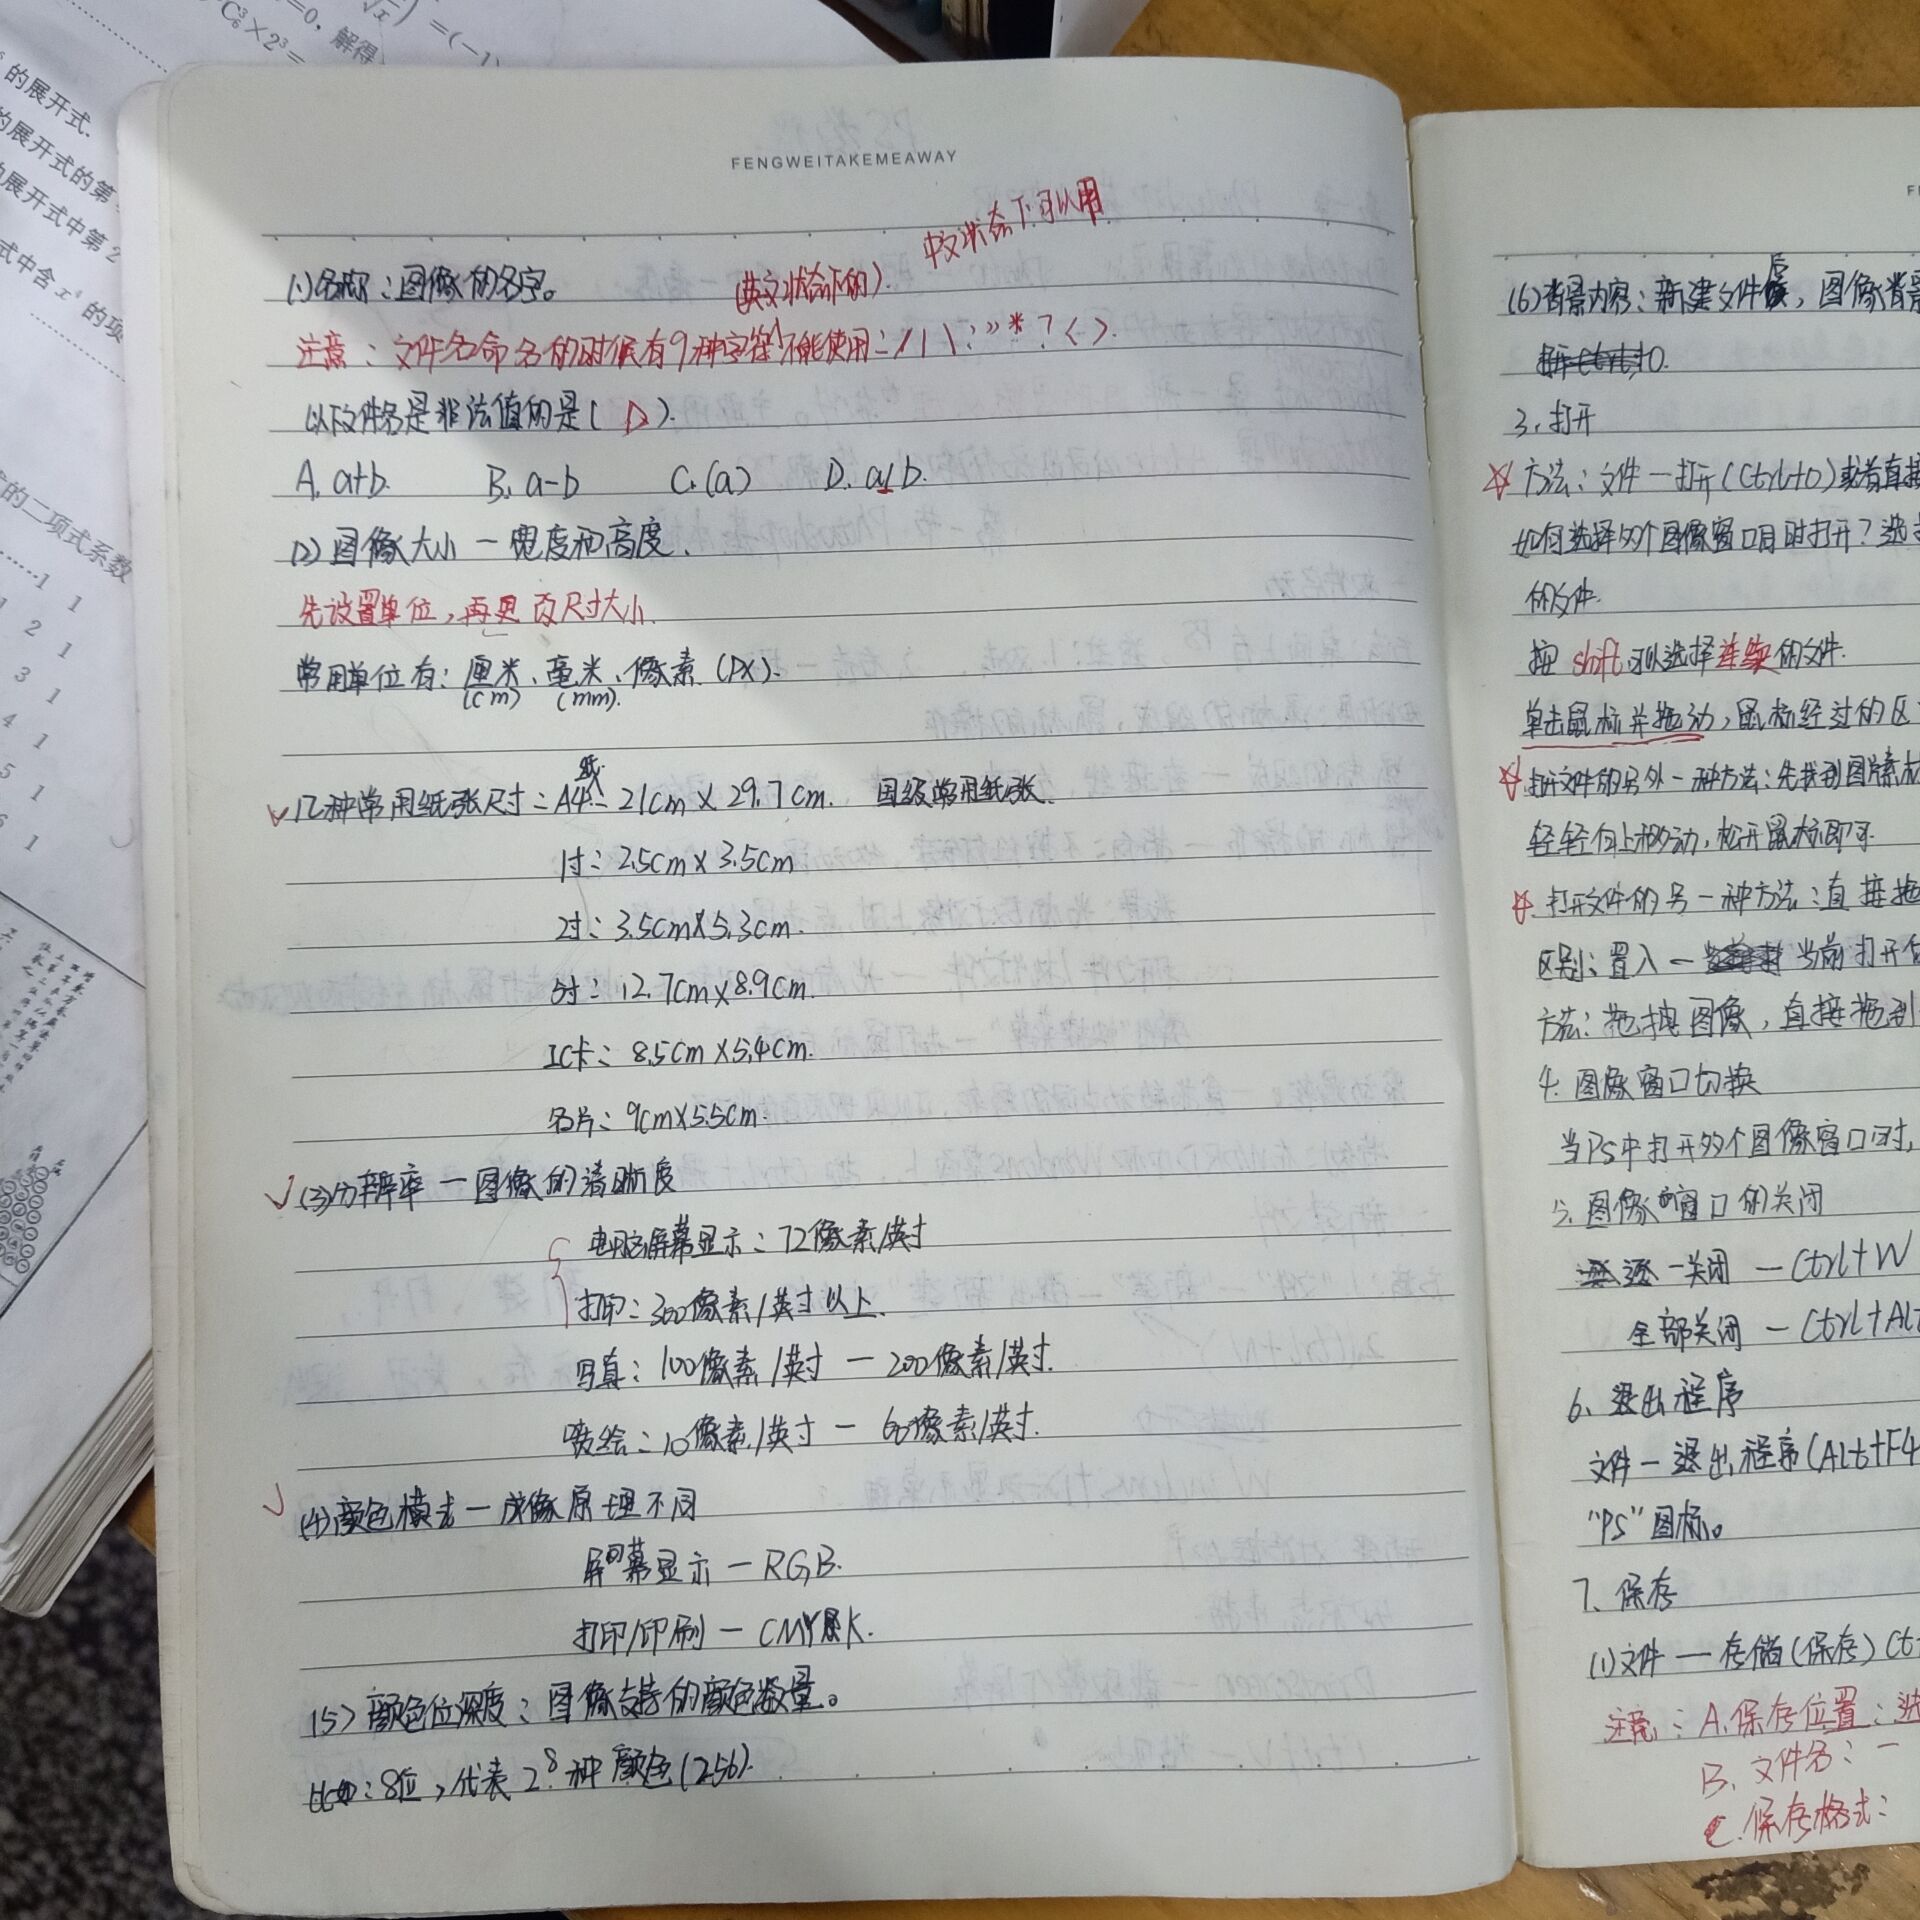 FENGWEITAKEMEAWAY
中文状态下可以用
(1)名称：图像的名字。
(英文状态下的).
注意：文件名命名的时候有9种字符不能使用：/ | \ : " * ? < >.
以下文件名是非法值的是( D ).
A. a+b. B. a-b C. (a) D. a/b.
(2)图像大小一宽度和高度.
先设置单位,再更改尺寸大小.
常用单位有：厘米、毫米、像素(px).
(cm) (mm).
几种常用纸张尺寸：A4纸：21cm×29.7cm. 国级常用纸张.
1寸：2.5cm×3.5cm
2寸：3.5cm×5.3cm.
5寸：12.7cm×8.9cm.
IC卡：8.5cm×5.4cm.
名片：9cm×5.5cm.
(3)分辨率一图像的清晰度
电脑屏幕显示：72像素/英寸
打印：300像素/英寸以上.
写真：100像素/英寸一200像素/英寸.
喷绘：10像素/英寸一60像素/英寸.
(4)颜色模式一成像原理不同
屏幕显示一RGB.
打印/印刷一CMYK.
(5)颜色位深度：图像支持的颜色数量。
比如：8位,代表2⁸种颜色(256).
(6)背景内容：新建文件后,图像背景
3、打开
方法：文件一打开(Ctrl+O)或者直接
如何选择多个图像窗口同时打开?选
的文件.
按shift可以选择连续的文件.
单击鼠标并拖动,鼠标经过的区
打开文件的另外一种方法：先找到图片素材
轻轻向上移动,松开鼠标即可
打开文件的另一种方法：直接拖
区别：置入一当前打开
方法：拖拽图像,直接拖到
4.图像窗口切换
当PS中打开多个图像窗口时,
5.图像窗口的关闭
逐一关闭一Ctrl+W
全部关闭一Ctrl+Alt
6、退出程序
文件一退出程序(Alt+F4
"PS"图标。
7、保存
(1)文件一存储(保存)Ct
注意：A.保存位置：选
B、文件名：一
C.保存格式：
的展开式.
的展开式的第
展开式中第2
式中含x⁴的项
的二项式系数